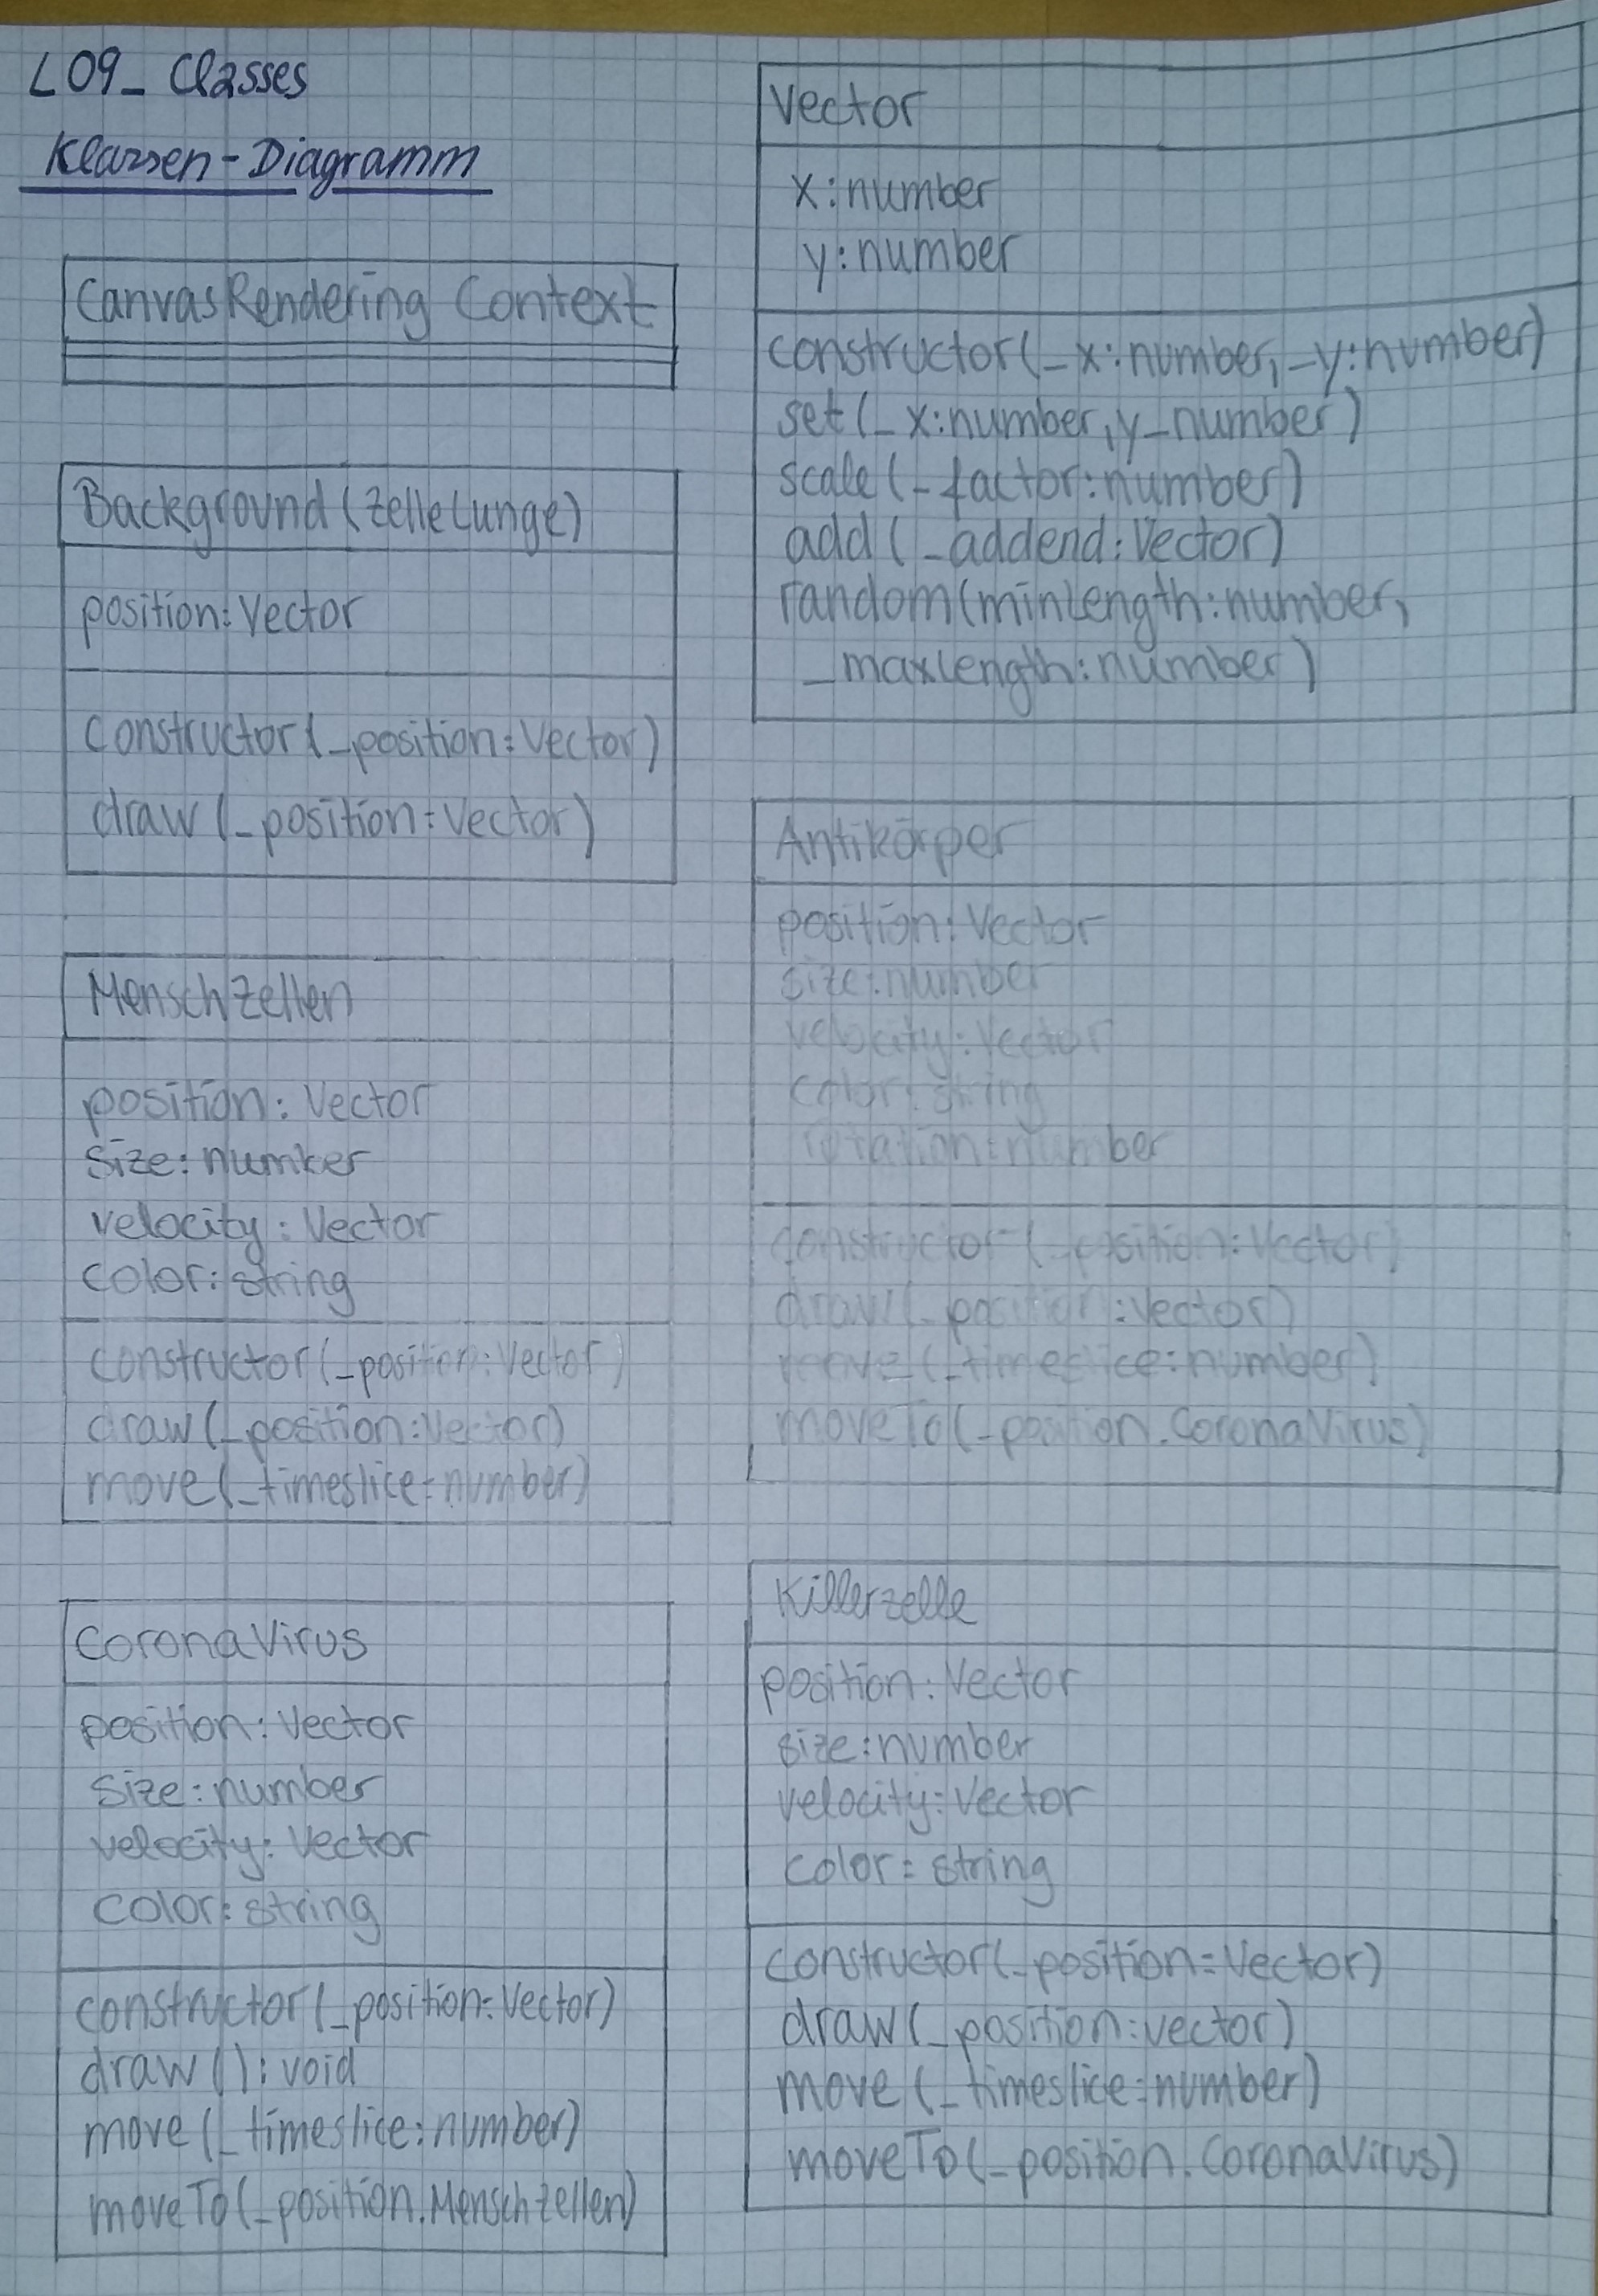 L09_ Classes
Klassen-Diagramm
CanvasRendering Context
Background(ZelleLunge)
position:Vector
constructor(_position:Vector)
draw(_position:Vector)
MenschZellen
position:Vector
size:number
velocity:Vector
color:string
constructor(_position:Vector)
draw(_position:Vector)
move(_timeslice:number)
CoronaVirus
position:Vector
size:number
velocity:Vector
color:string
constructor(_position:Vector)
draw():void
move(_timeslice:number)
moveTo(_position.MenschZellen)
Vector
x:number
y:number
constructor(_x:number,_y:number)
set(_x:number,y_number)
scale(_factor:number)
add(_addend:Vector)
random(minLength:number,
_maxLength:number)
Antikörper
position:Vector
size:number
velocity:Vector
color:string
rotation:number
constructor(_position:Vector)
draw(_position:Vector)
move(_timeslice:number)
moveTo(_position.CoronaVirus)
Killerzelle
position:Vector
size:number
velocity:Vector
color:string
constructor(_position:Vector)
draw(_position:vector)
move(_timeslice:number)
moveTo(_position.CoronaVirus)